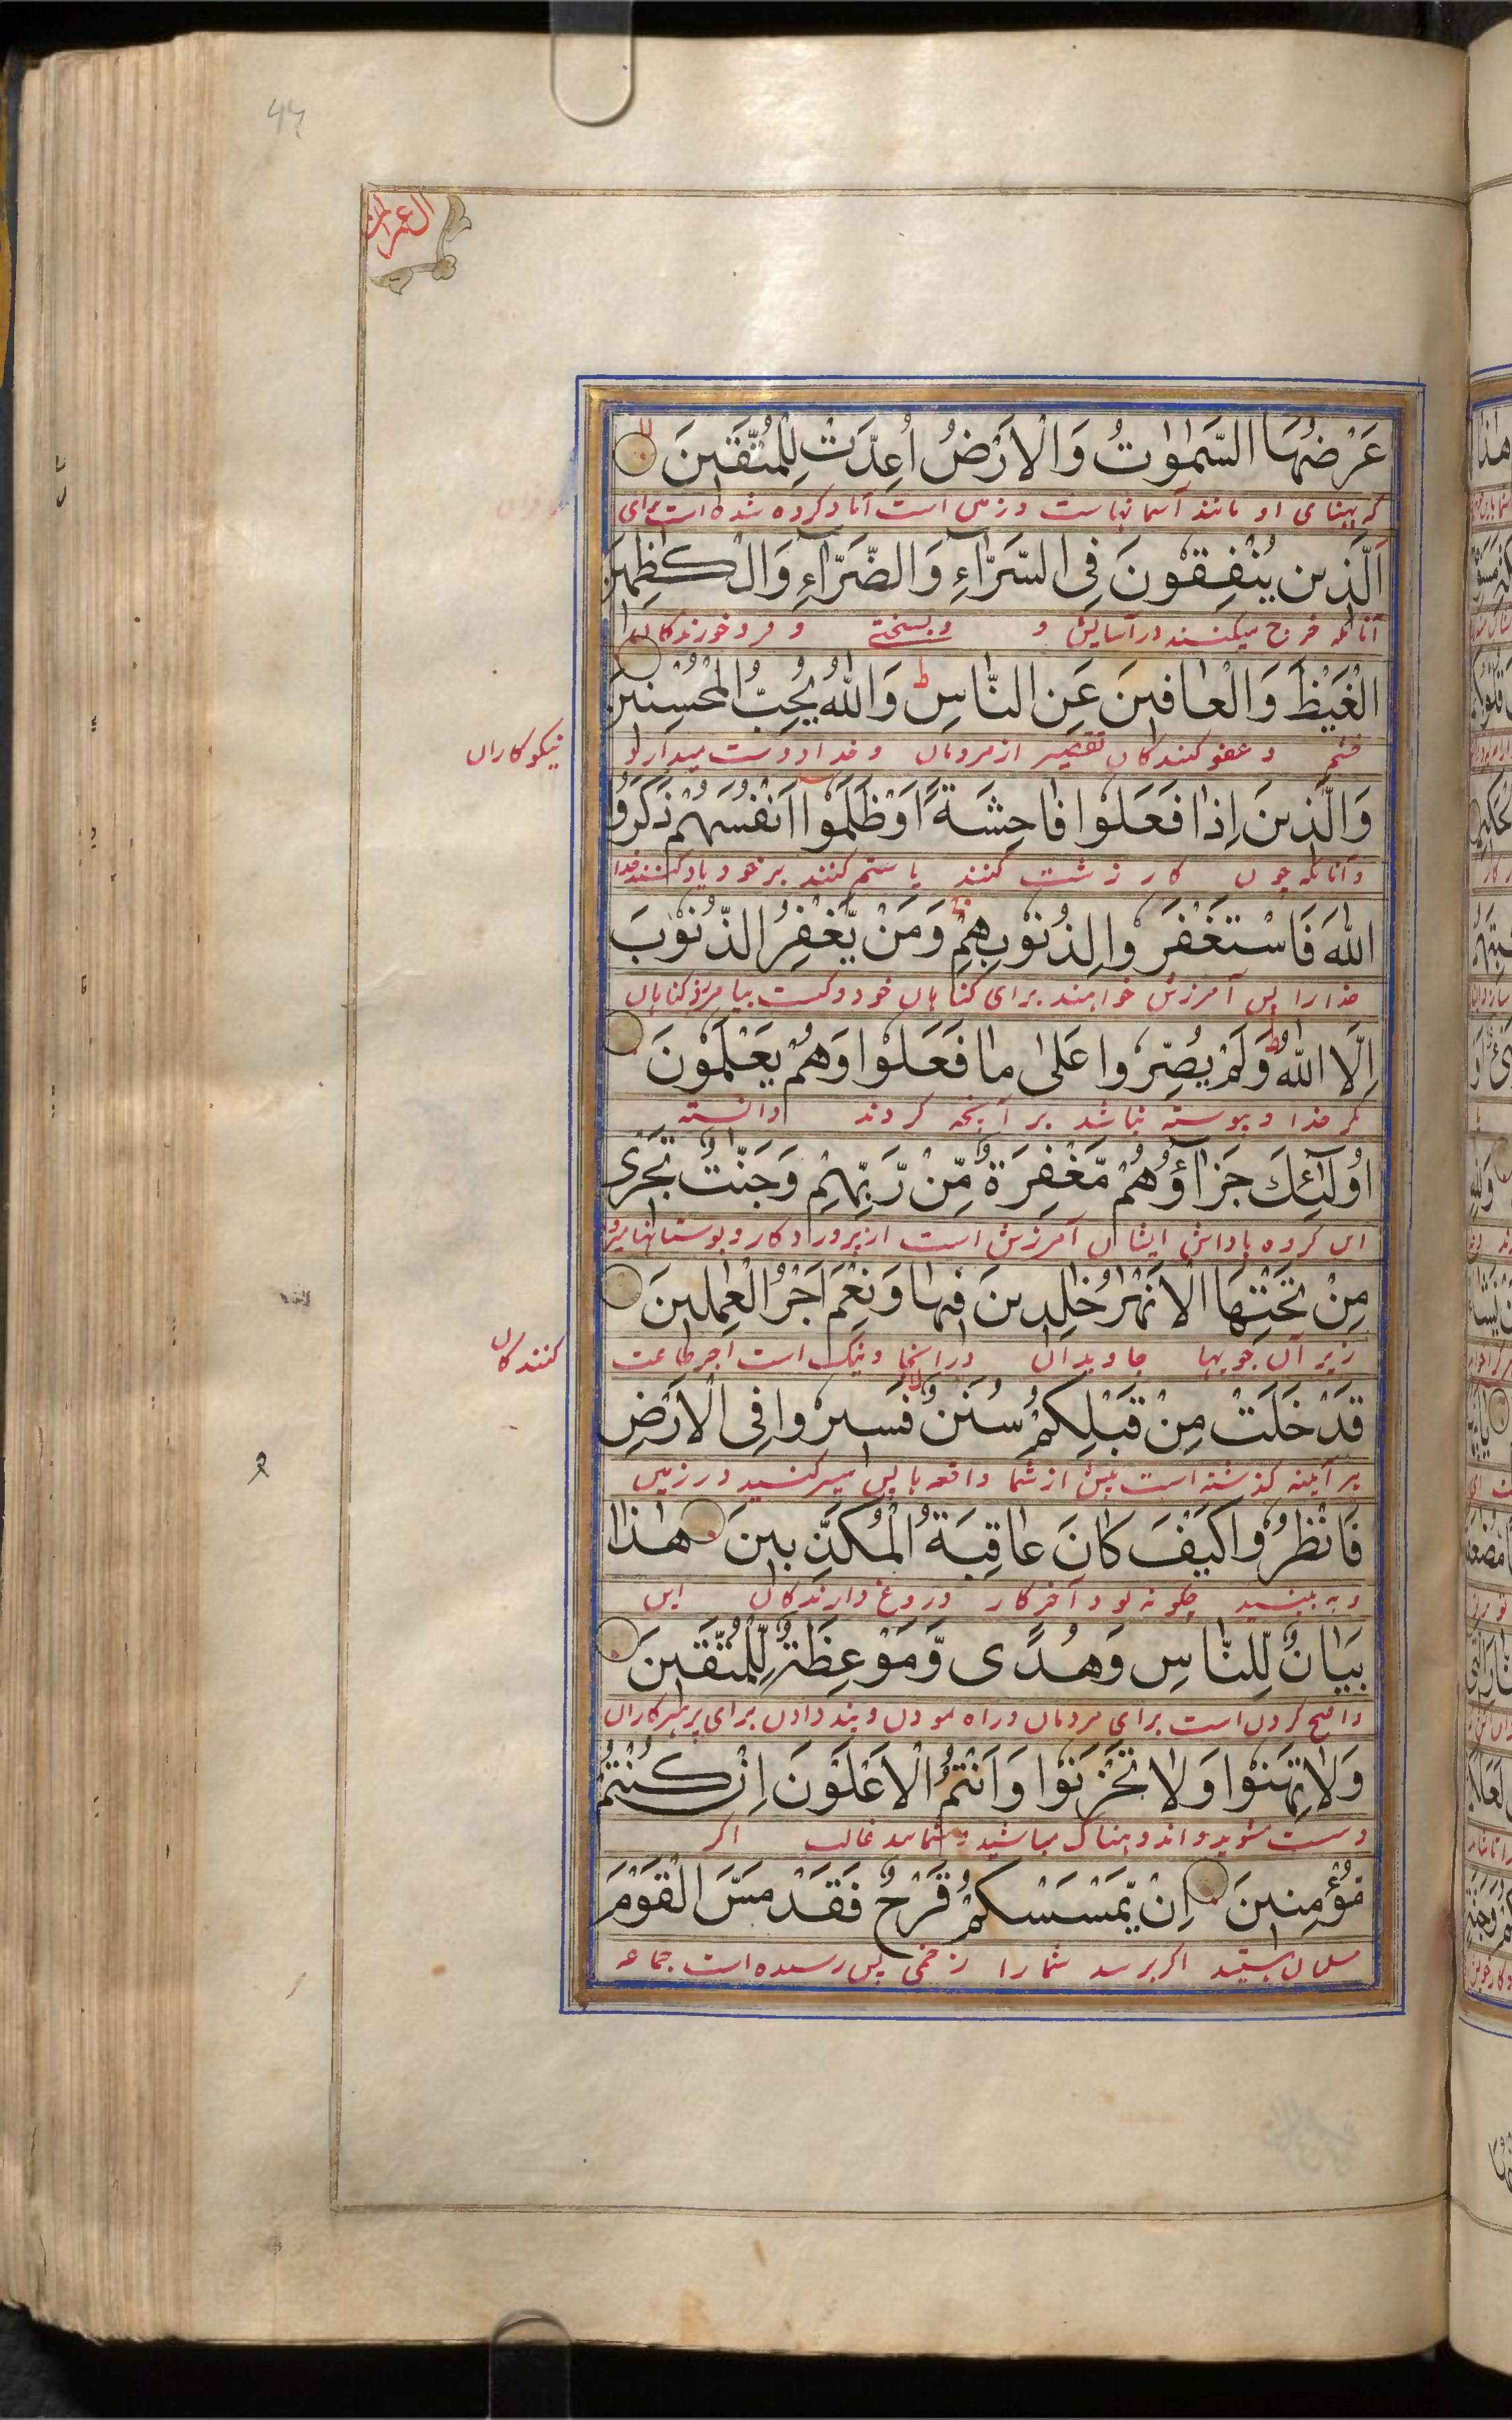 44
العمران
عَرْضُهَا السَّمٰوٰتُ وَالْاَرْضُ اُعِدَّتْ لِلْمُتَّقٖينَ
که پهنای او مانند آسمانهاست و زمین است آماده کرده شده است برای
اَلَّذٖينَ يُنْفِقُونَ فِی السَّرَّآءِ وَالضَّرَّآءِ وَالْكٰظِمٖينَ
آنانکه خرج میکنند در آسایش و و بسختے و فرو خورندکان
الْغَيْظَ وَالْعَافٖينَ عَنِ النَّاسِ ط وَاللّٰهُ يُحِبُّ الْمُحْسِنٖينَ
خشم و عفو کنندکان تقصیر از مردمان و خدا دوست میدارد
نیکوکاران
وَالَّذٖينَ اِذَا فَعَلُوْا فَاحِشَةً اَوْ ظَلَمُوْا اَنْفُسَهُمْ ذَكَرُو
و آنانکه چون کار زشت کنند یا ستم کنند بر خود یاد کنند خدا
اللّٰهَ فَاسْتَغْفَرُوا لِذُنُوْبِهِمْ وَمَنْ يَّغْفِرُ الذُّنُوْبَ
خدا را پس آمرزش خواهند برای کناهان خود و کیست بیامرزد کناهان
اِلَّا اللّٰهُ ط وَلَمْ يُصِرُّوا عَلٰى مَا فَعَلُوْا وَهُمْ يَعْلَمُوْنَ
مکر خدا و پیوسته نباشد بر آنچه کردند دانسته
اُولٰٓئِكَ جَزَآؤُهُمْ مَّغْفِرَةٌ مِّنْ رَّبِّهِمْ وَجَنّٰتٌ تَجْرٖى
این کروه پاداش ایشان آمرزش است از پروردکار و بوستانها میرو
مِنْ تَحْتِهَا الْاَنْهٰرُ خٰلِدٖينَ فٖيهَا وَنِعْمَ اَجْرُ الْعٰمِلٖينَ
زیر آن جویها جاویدان در آنجا و نیک است اجر طاعت
کنندکان
قَدْ خَلَتْ مِنْ قَبْلِكُمْ سُنَنٌ لا فَسٖيرُوْا فِی الْاَرْضِ
هر آینه کذشته است پیش از شما واقعه‌ها پس سیر کنید در زمین
فَانْظُرُوْا كَيْفَ كَانَ عَاقِبَةُ الْمُكَذِّبٖينَ هٰذَا
و به بینید چکونه بود آخر کار دروغ دارندکان این
بَيَانٌ لِّلنَّاسِ وَهُدًى وَّمَوْعِظَةٌ لِّلْمُتَّقٖينَ
واضح کردن است برای مردمان و راه نمودن و پند دادن برای پرهیزکاران
وَلَا تَهِنُوْا وَلَا تَحْزَنُوْا وَاَنْتُمُ الْاَعْلَوْنَ اِنْ كُنْتُمْ
و سست مشوید و اندوهناک مباشید و شمایید غالب اکر
مُؤْمِنٖينَ اِنْ يَّمْسَسْكُمْ قَرْحٌ فَقَدْ مَسَّ الْقَوْمَ
مسلمان هستید اکر برسد شما را زخمی پس رسیده است جماعه